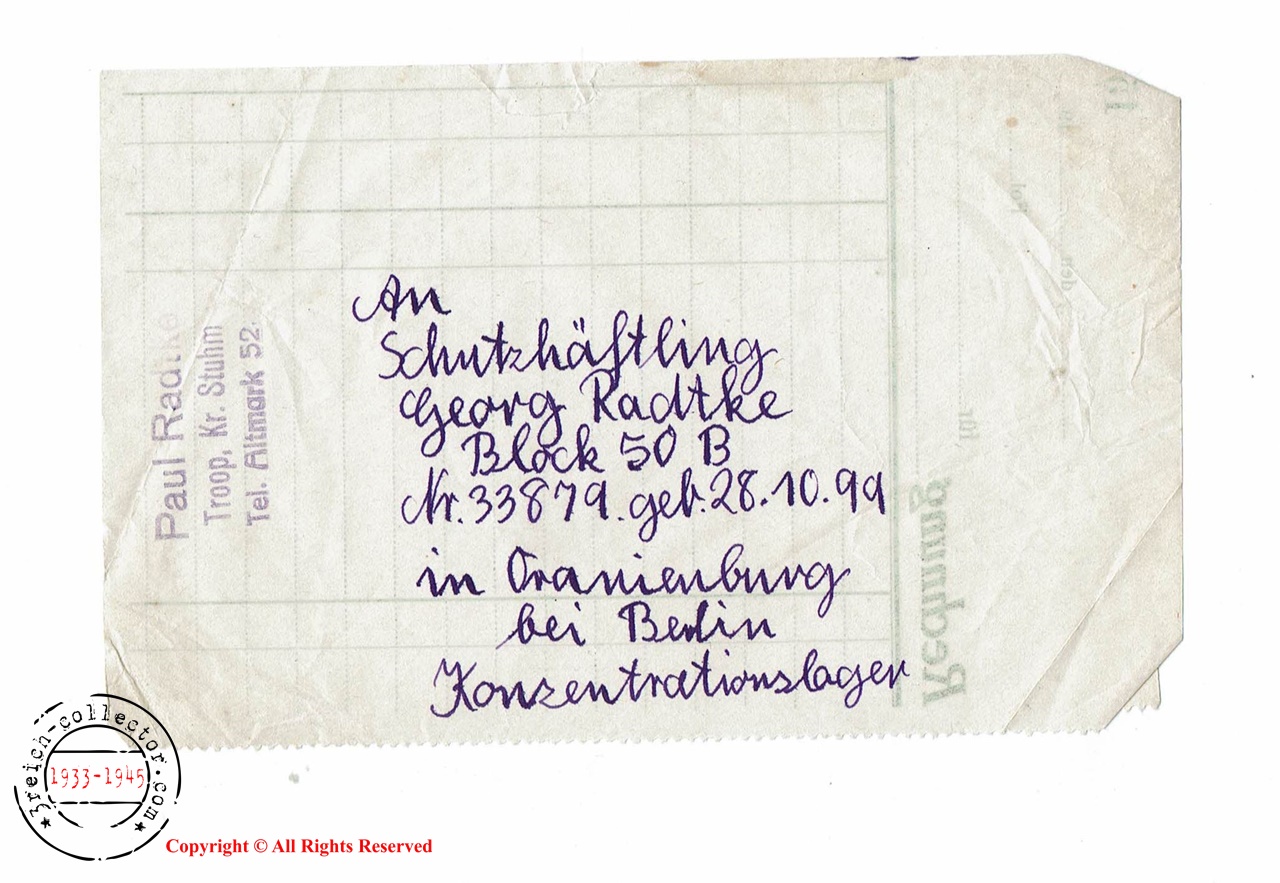 An
Schutzhäftling
Georg Radtke
Block 50 B
Nr. 33879. geb. 28.10.99
in Oranienburg
bei Berlin
Konzentrationslager
Paul Radtke
Troop, Kr. Stuhm
Tel. Altmark 52.
Rechnung
für
den
15
3reich-collector.com
1933-1945
Copyright © All Rights Reserved